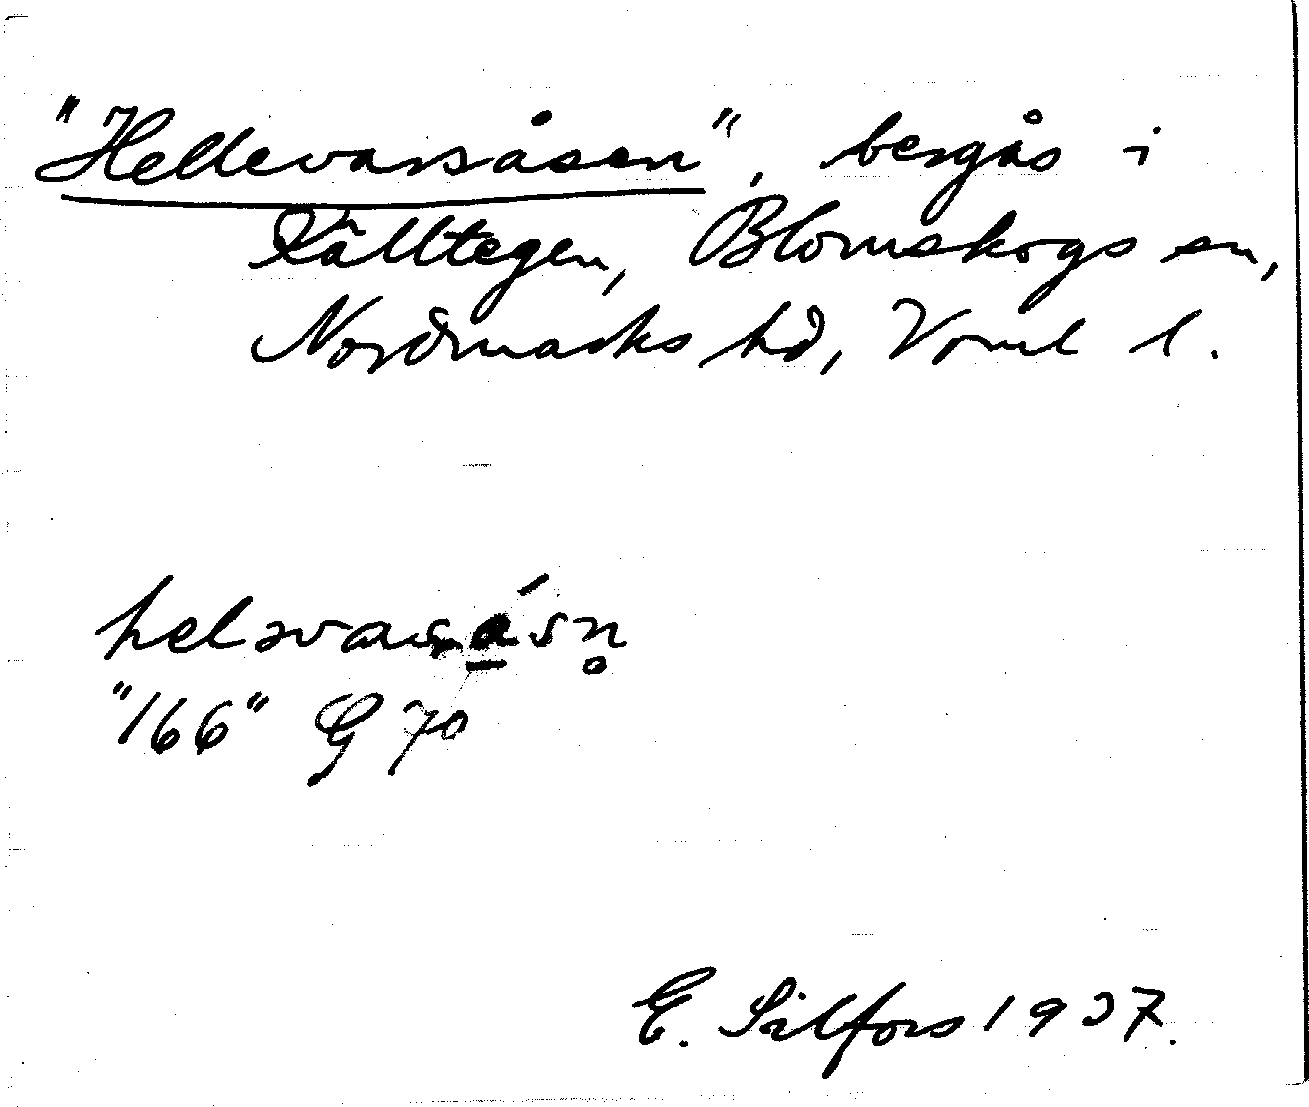 "Hellevarsåsen", bergås i
Källtegen, Blomskogs sn,
Nordmarks hd, Vrml l.
"166" G 70
E. Silfors 1937.